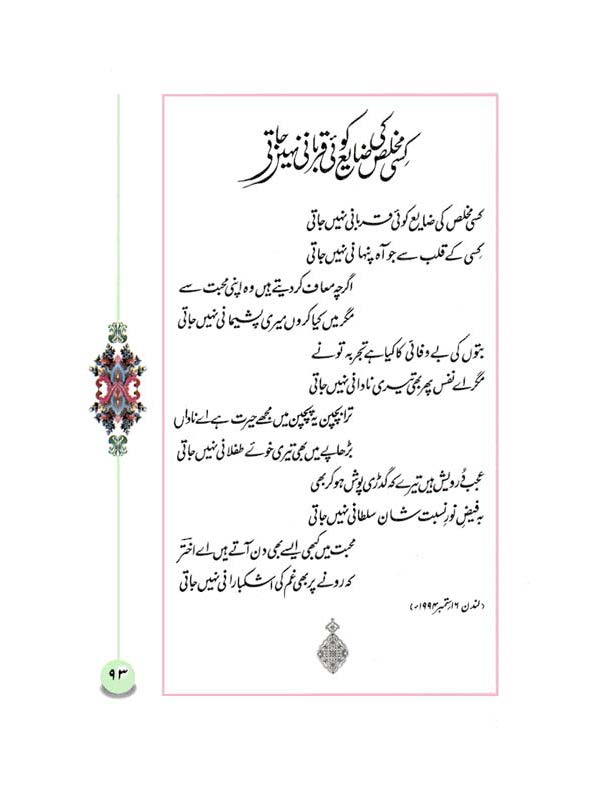 کسی مخلص کی ضایع کوئی قربانی نہیں جاتی
کسی مخلص کی ضایع کوئی قربانی نہیں جاتی
کسی کے قلب سے جو آہ پنہانی نہیں جاتی
اگرچہ معاف کردیتے ہیں وہ اپنی محبت سے
مگر میں کیا کروں میری پشیمانی نہیں جاتی
بتوں کی بے وفائی کا کیا ہے تجربہ تو نے
مگر اے نفس پھر بھی تیری نادانی نہیں جاتی
ترا بچپن یہ پچپن میں مجھے حیرت ہے اے ناداں
بڑھاپے میں بھی تیری خوئے طفلانی نہیں جاتی
عجب درویش ہیں تیرے کہ گدڑی پوش ہو کر بھی
بہ فیضِ نورِ نسبت شان سلطانی نہیں جاتی
محبت میں کبھی ایسے بھی دن آتے ہیں اے اختؔر
کہ رونے پر بھی غم کی اشکبارانی نہیں جاتی
(لندن ۱۶ ستمبر ۱۹۹۴ء)
۹۳